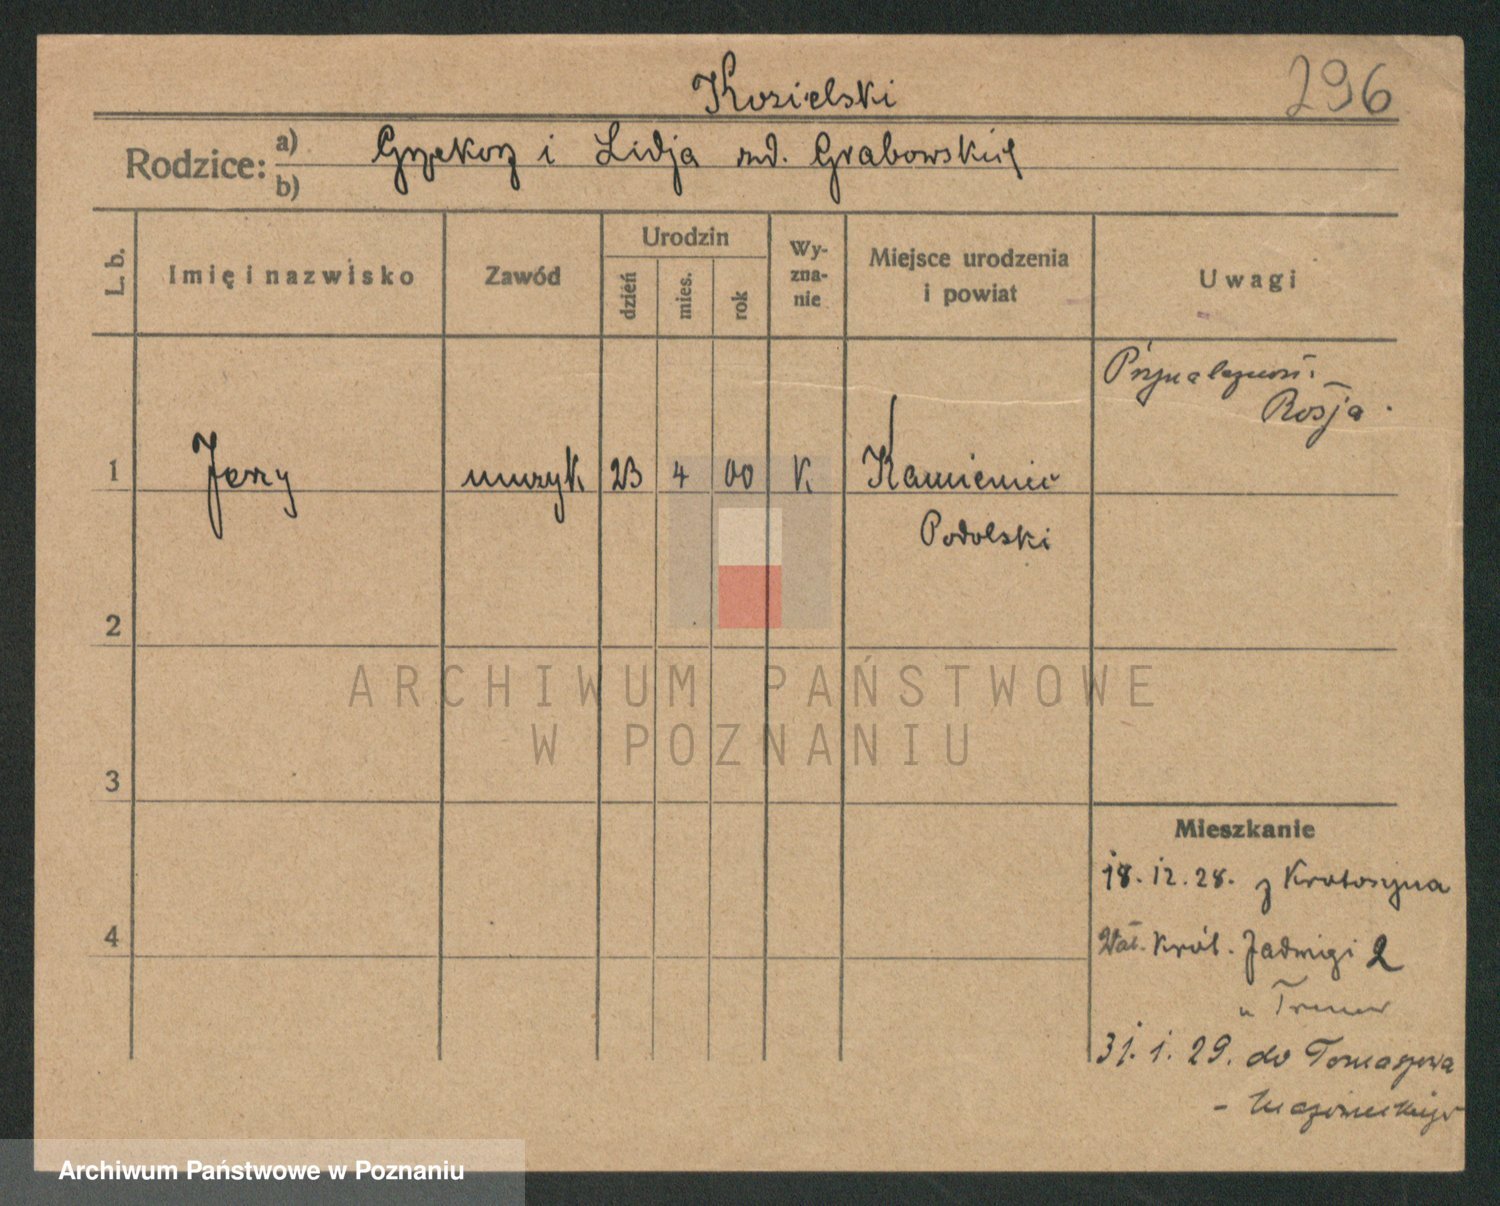 Kozielski
296
Rodzice: a) Grzekorz i Lidja zd. Grabowskiej
b)
L. b.
Imię i nazwisko
Zawód
Urodzin
dzień
mies.
rok
Wy-
zna-
nie
Miejsce urodzenia
i powiat
Uwagi
Przynależność:
Rosja.
1 Jerzy muzyk 23 4 00 K Kamieniec
Podolski
2
3
4
ARCHIWUM PAŃSTWOWE
W POZNANIU
Mieszkanie
18.12.28. z Krotoszyna
Wał. Król. Jadwigi 2
u
31.1.29. do Tomaszowa
- Mazowieckiego
Archiwum Państwowe w Poznaniu